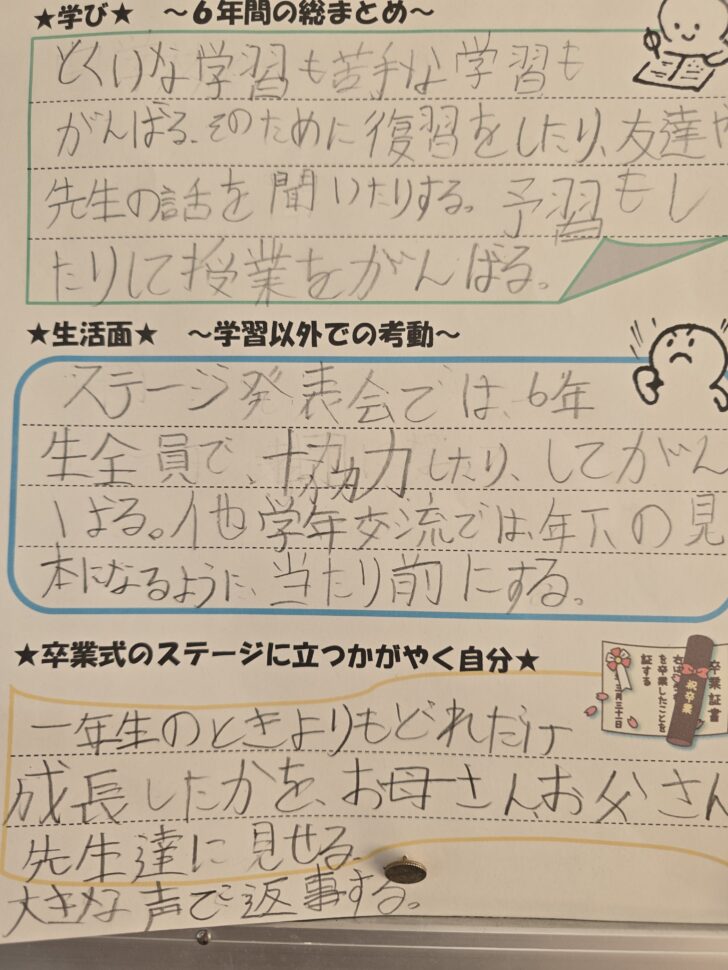 ★学び★ ～6年間の総まとめ～
とくいな学習も苦手な学習も
がんばる、そのために復習をしたり、友達や
先生の話を聞いたりする。予習もし
たりして授業をがんばる。
★生活面★ ～学習以外での考動～
ステージ発表会では、6年
生全員で、協力したり、してがん
ばる。他学年交流では、年下の見
本になるように、当たり前にする。
★卒業式のステージに立つかがやく自分★
卒業証書
を卒業したことを
証する
三月三十一日
祝卒業
一年生のときよりもどれだけ
成長したかを、お母さん、お父さん
先生達に見せる。
大きな声で返事する。